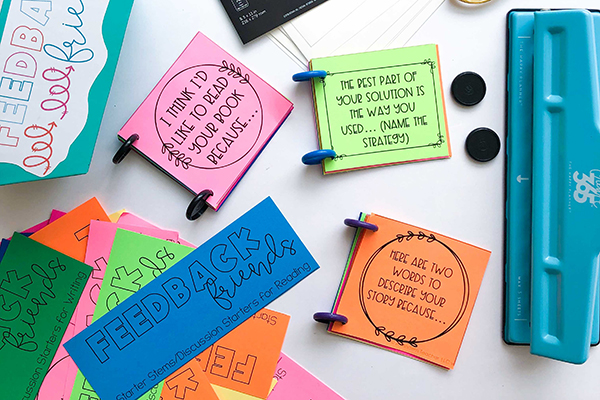 FEEDBACK
friends
I THINK I'D
LIKE TO READ
YOUR BOOK
BECAUSE...
THE BEST PART OF
YOUR SOLUTION IS
THE WAY YOU
USED... (NAME THE
STRATEGY)
HERE ARE TWO
WORDS TO
DESCRIBE YOUR
STORY BECAUSE...
FEEDBACK
friends
Starter Stems/Discussion Starters for Reading
ACK
Discussion Starters for Writing
CK
FEE
THE HAPPY PLANNER
365